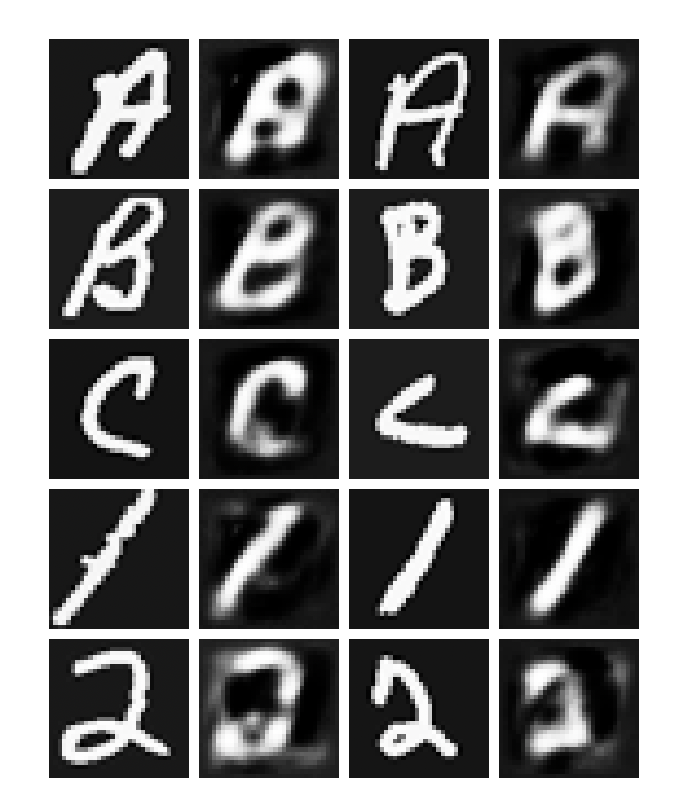 A A A A
B B B B
C C C C
1 1 1 1
2 2 2 2